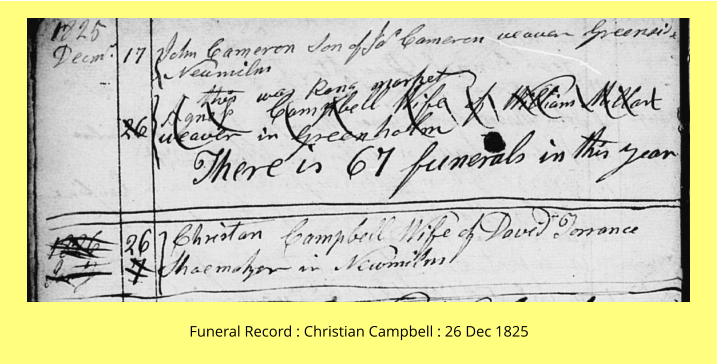 1825
Decmr. 17 John Cameron Son of Jas Cameron weaver Greenside
Newmilns
this was Rong market
Agnes Campbell Wife of William
26 weaver in Greenholm
There is 67 funerals in this year
1826 26 Christan Campbell Wife of David Torrance
Shoemaker in Newmilns
Funeral Record : Christian Campbell : 26 Dec 1825